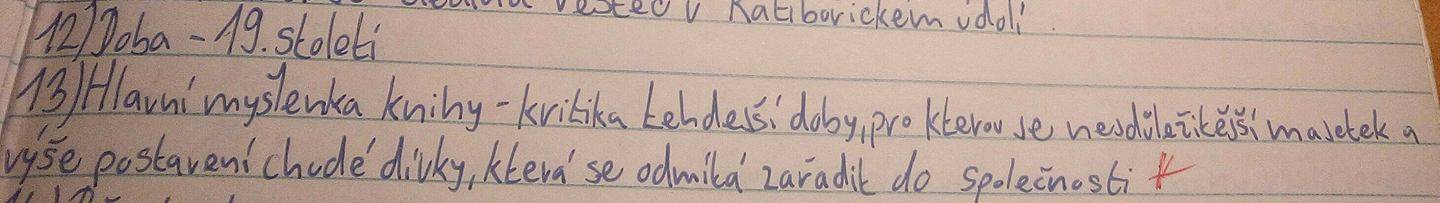 vestec v Ratibořickém údolí.
12) Doba - 19. století
13) Hlavní myšlenka knihy - kritika tehdejší doby, pro kterou je nejdůležitější majetek a
výše postavení chudé dívky, která se odmítá zařadit do společnosti